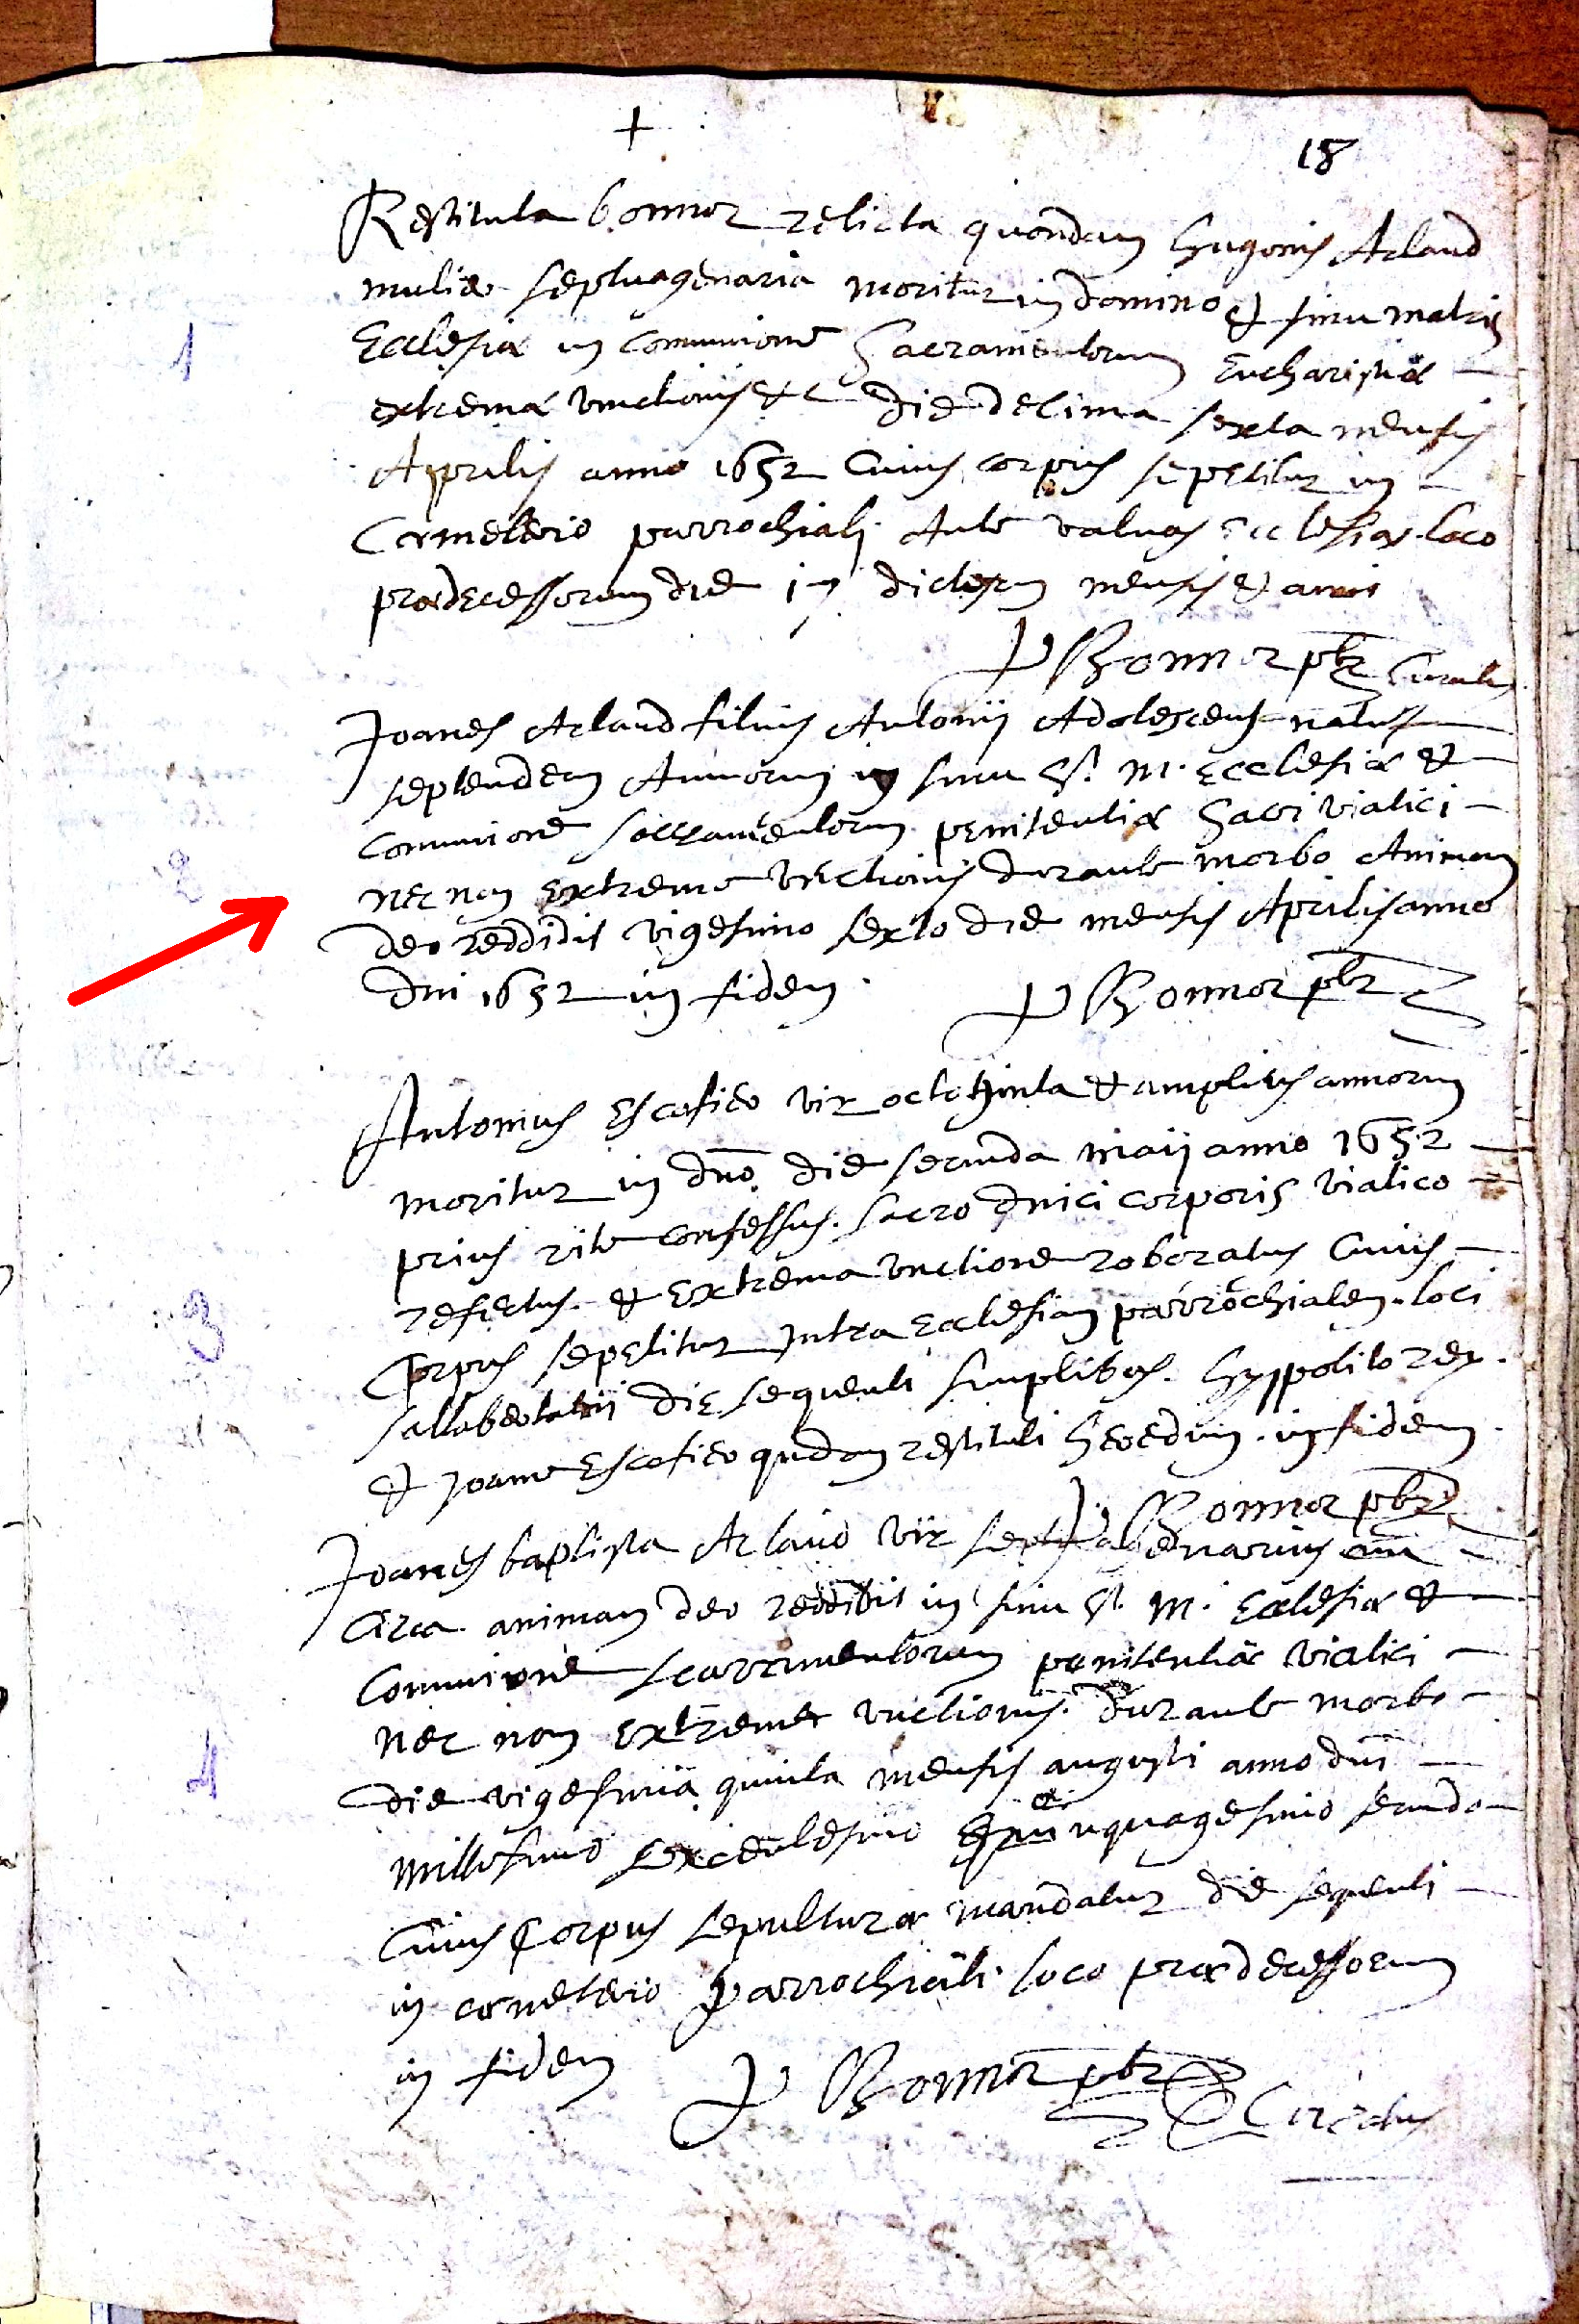 +
18
Restituta bonnor relicta quondam hugonis Arlaud
mulier septuagenaria moritur in domino et sinu matris
Ecclesiæ in communione Sacramentorum Eucharistiæ
extremæ unctionis etc die decima sexta mensis
Aprilis anno 1652 Cuius corpus sepelitur in
Cœmeterio parrochiali Ante valvas ecclesiæ loco
prædecessorum die 17 mensis et anni
P Bonnor pbr Curatus
1
Joanes Arlaud filius Antonii Adolescens natus
septendem Annorum in sinu S. M. Ecclesiæ et
communione sacramentorum penitentiæ Sacri viatici
nec non extreme unctionis durante morbo Animam
deo reddidit vigesimo sexto die mensis Aprilis anno
dni 1652 in fidem
P Bonnor pbr
2
Antonius Escofier vir octoginta et amplius annorum
moritur in dno die secunda maij anno 1652
prius rite confessus. sacro dnici corporis viatico
refectus. et Extrema unctione roboratus Cuius
Corpus sepelitur Intra Ecclesiam parrochialem. loci
die sequenti hyppolito rey.
et joane Escofier qudam restituti in fidem
P Bonnor pbr
3
Joanes baptista Arlaud vir septuagenarius
Circa animam deo reddidit in sinu S. M. Ecclesiæ et
Communione sacramentorum penitentiæ viatici
nec non Extreme unctionis. durante morbo
die vigesima quinta mensis augusti anno dni
millesimo sexcentesimo quinquagesimo secundo
Cuius Corpus sepulturæ mandatur die sequenti
in cœmeterio parrochiali loco prædecessorum
in fidem
P Bonnor pbr Curatus
4